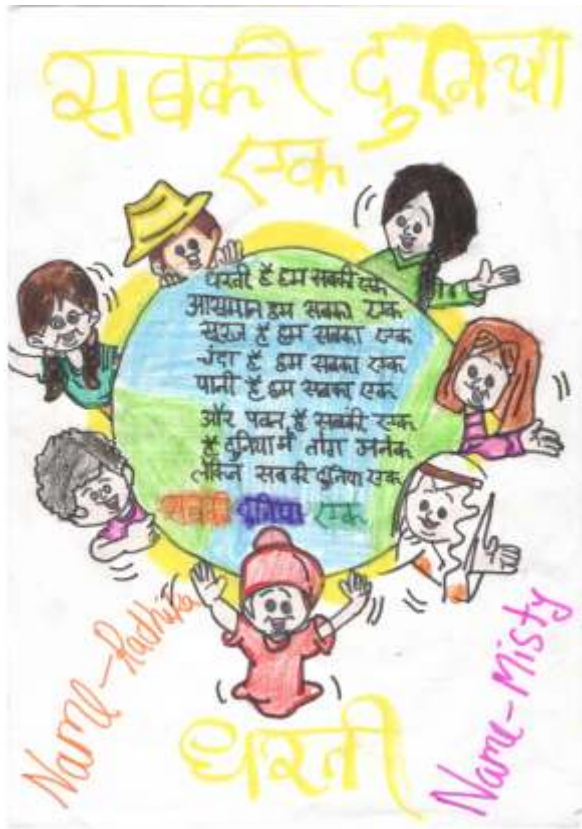 सबकी दुनिया
एक
धरती है हम सबकी एक
आसमान हम सबका एक
सूरज है हम सबका एक
चंदा है हम सबका एक
पानी है हम सबका एक
और पवन है सबकी एक
है दुनिया में लोग अनेक
लेकिन सबकी दुनिया एक
सबकी दुनिया एक
Name-Radhika
Name-Misty
धरती